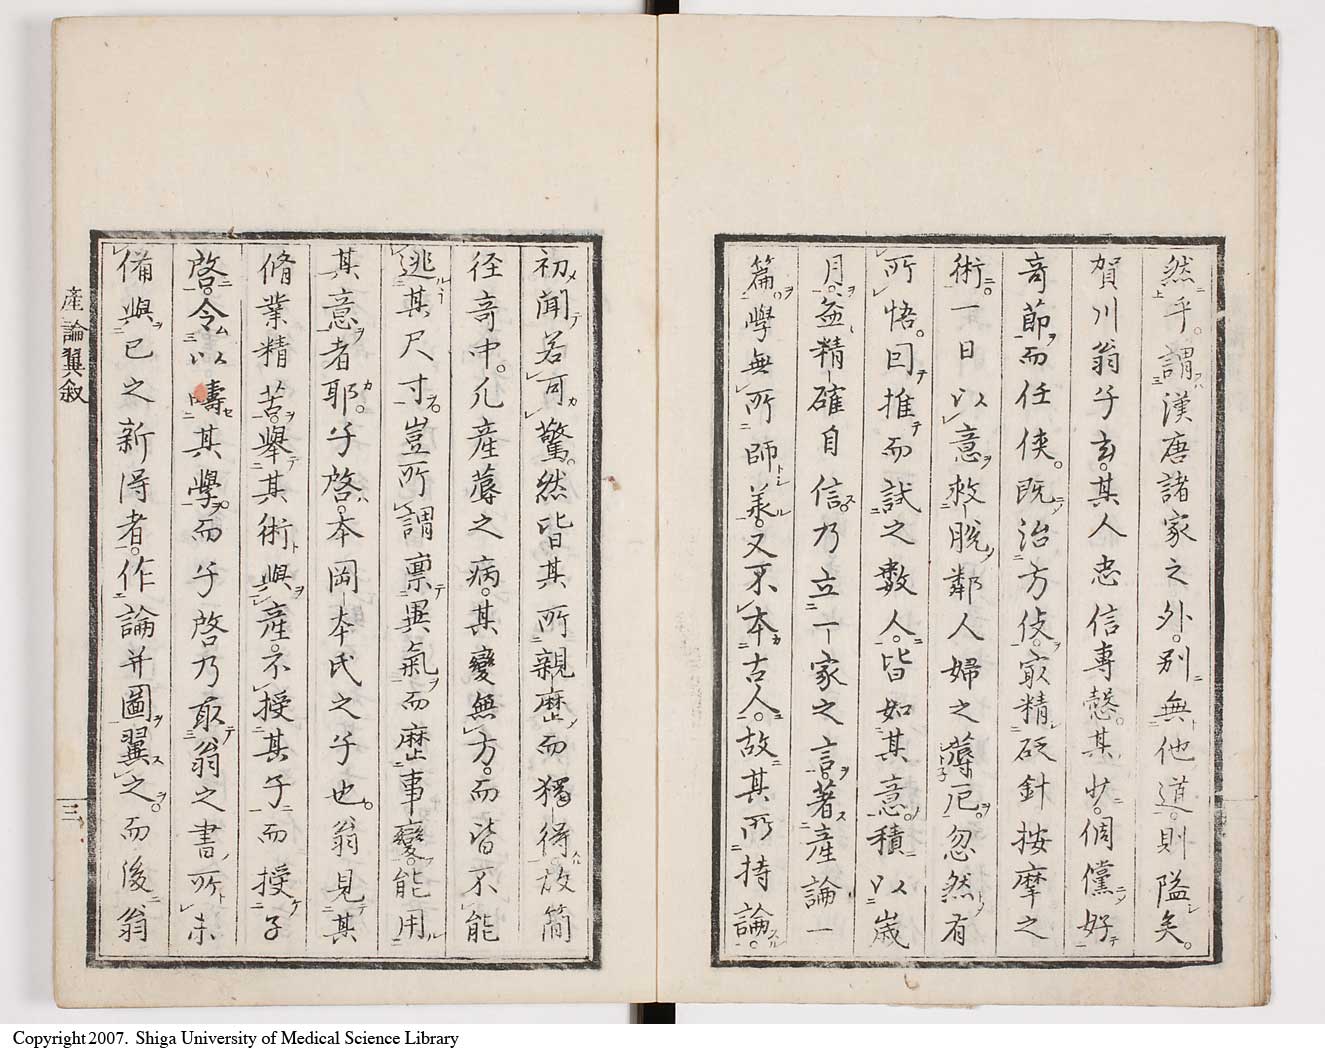 然乎。謂漢唐諸家之外。別無他道。則隘矣。
賀川翁子玄。其人忠信專愨。其少。倜儻好
奇節而任俠。既治方伎。最精砭針按摩之
術。一日以意救脫鄰人婦之蓐厄。忽然有
所悟。因推而試之數人。皆如其意。積以歲
月。益精確自信。乃立一家之言。著產論一
篇。學無所師羕。又不本古人。故其所持論。
初聞若可驚。然皆其所親歷而獨得。故簡
徑奇中。凡產蓐之病。其變無方。而皆不能
逃其尺寸。豈所謂禀異氣而歷事變。能用
其意者耶。子啓。本岡本氏之子也。翁見其
脩業精苦。舉其術與產。不授其子而授子
啓。令以嶹其學。而子啓乃取翁之書。所未
備與己之新得者。作論并圖翼之。而後翁
產論翼叙
三
Copyright 2007. Shiga University of Medical Science Library